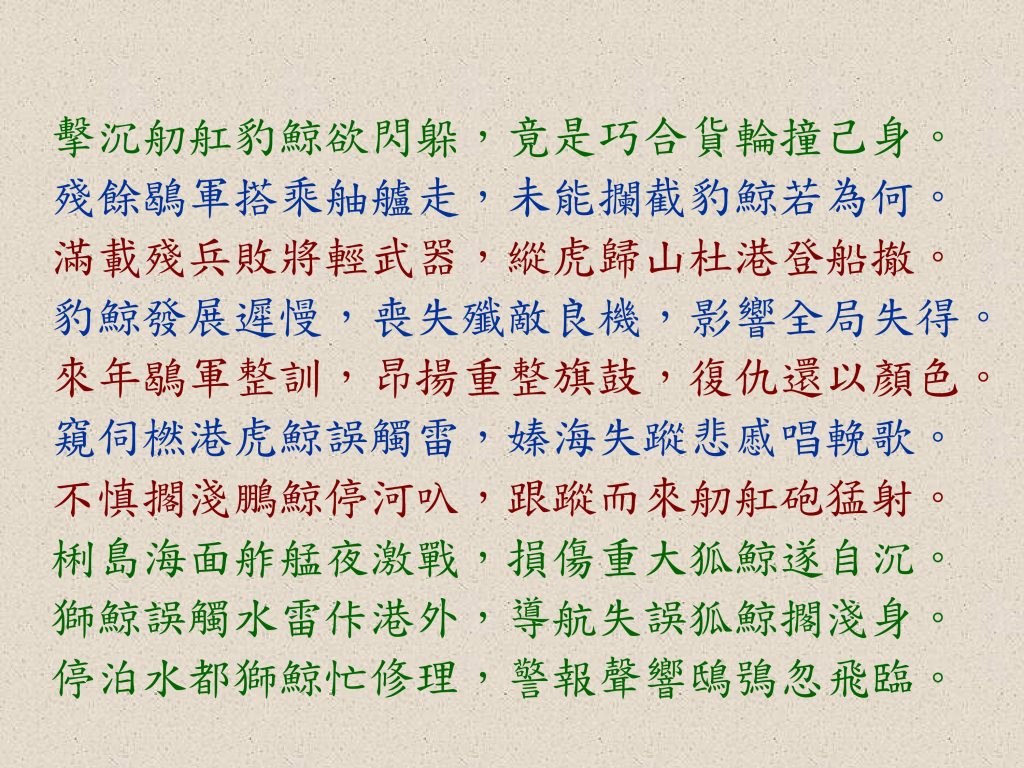 擊沉舠舡豹鯨欲閃躲，竟是巧合貨輪撞己身。
殘餘鶡軍搭乘舳艫走，未能攔截豹鯨若為何。
滿載殘兵敗將輕武器，縱虎歸山杜港登船撤。
豹鯨發展遲慢，喪失殲敵良機，影響全局失得。
來年鶡軍整訓，昂揚重整旗鼓，復仇還以顏色。
窺伺橪港虎鯨誤觸雷，嫀海失蹤悲慼唱輓歌。
不慎擱淺鵬鯨停河叺，跟蹤而來舠舡砲猛射。
梸島海面舴艋夜激戰，損傷重大狐鯨遂自沉。
獅鯨誤觸水雷佧港外，導航失誤狐鯨擱淺身。
停泊水都獅鯨忙修理，警報聲響鴟鴞忽飛臨。